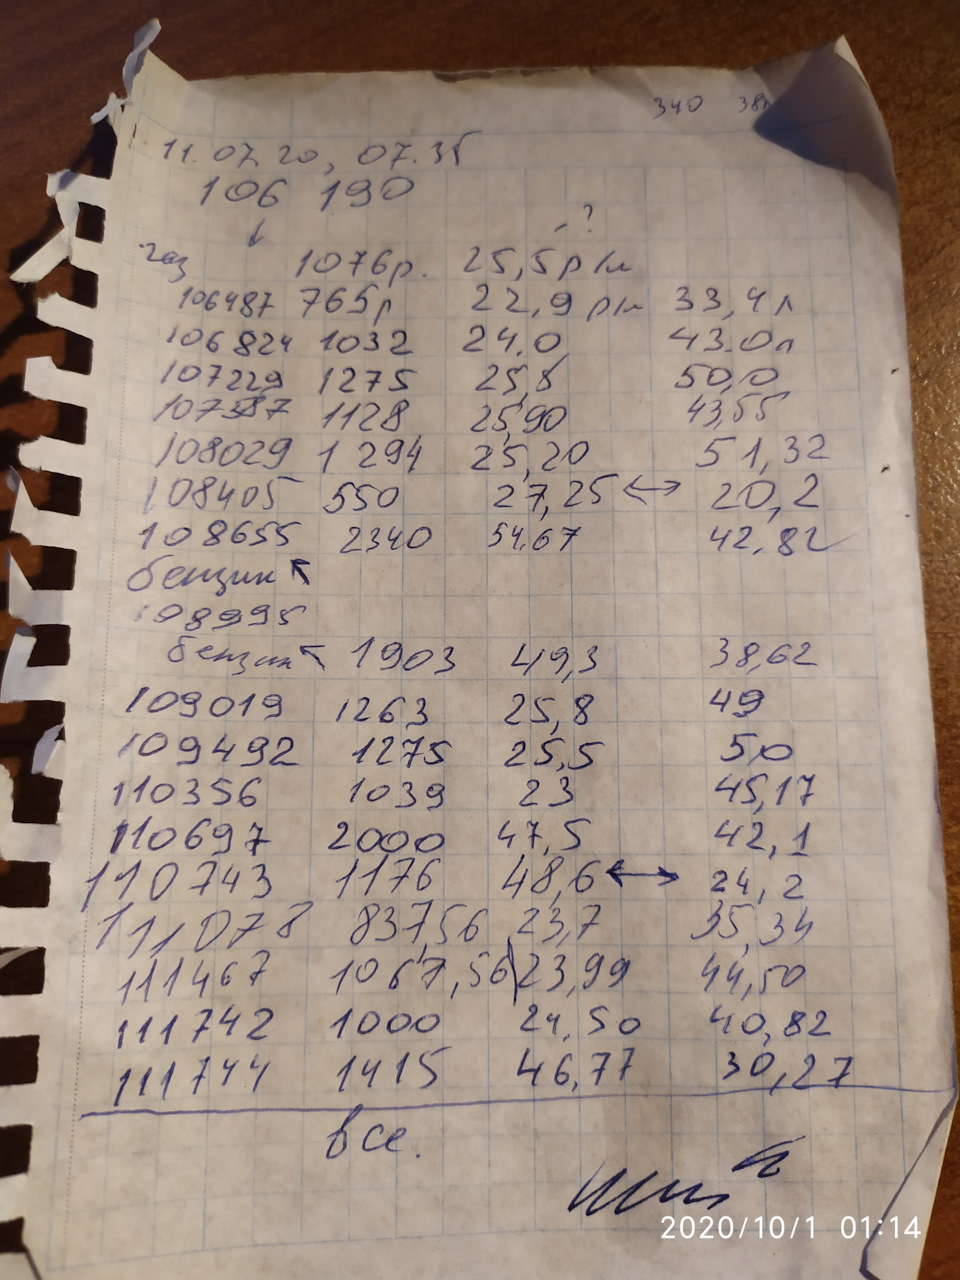 340 38л
11.07.20, 07.35
106 190
↓
- ?
газ 1076р. 25,5р/л
106487 765р 22,9 р/л 33,4л
106824 1032 24.0 43.0л
107229 1275 25,5 50,0
107587 1128 25,90 43,55
108029 1294 25,20 51,32
108405 550 27,25 ↔ 20,2
108655 2340 54.67 42,82
бензин ↖
108995
бензин ↖ 1903 49,3 38,62
109019 1263 25,8 49
109492 1275 25,5 50
110356 1039 23 45,17
110697 2000 47,5 42,1
110743 1176 48,6 ↔ 24,2
111078 837,56 23,7 35,34
111467 1067,56 23,99 44,50
111742 1000 24,50 40,82
111744 1415 46,77 30,27
все.
2020/10/1 01:14